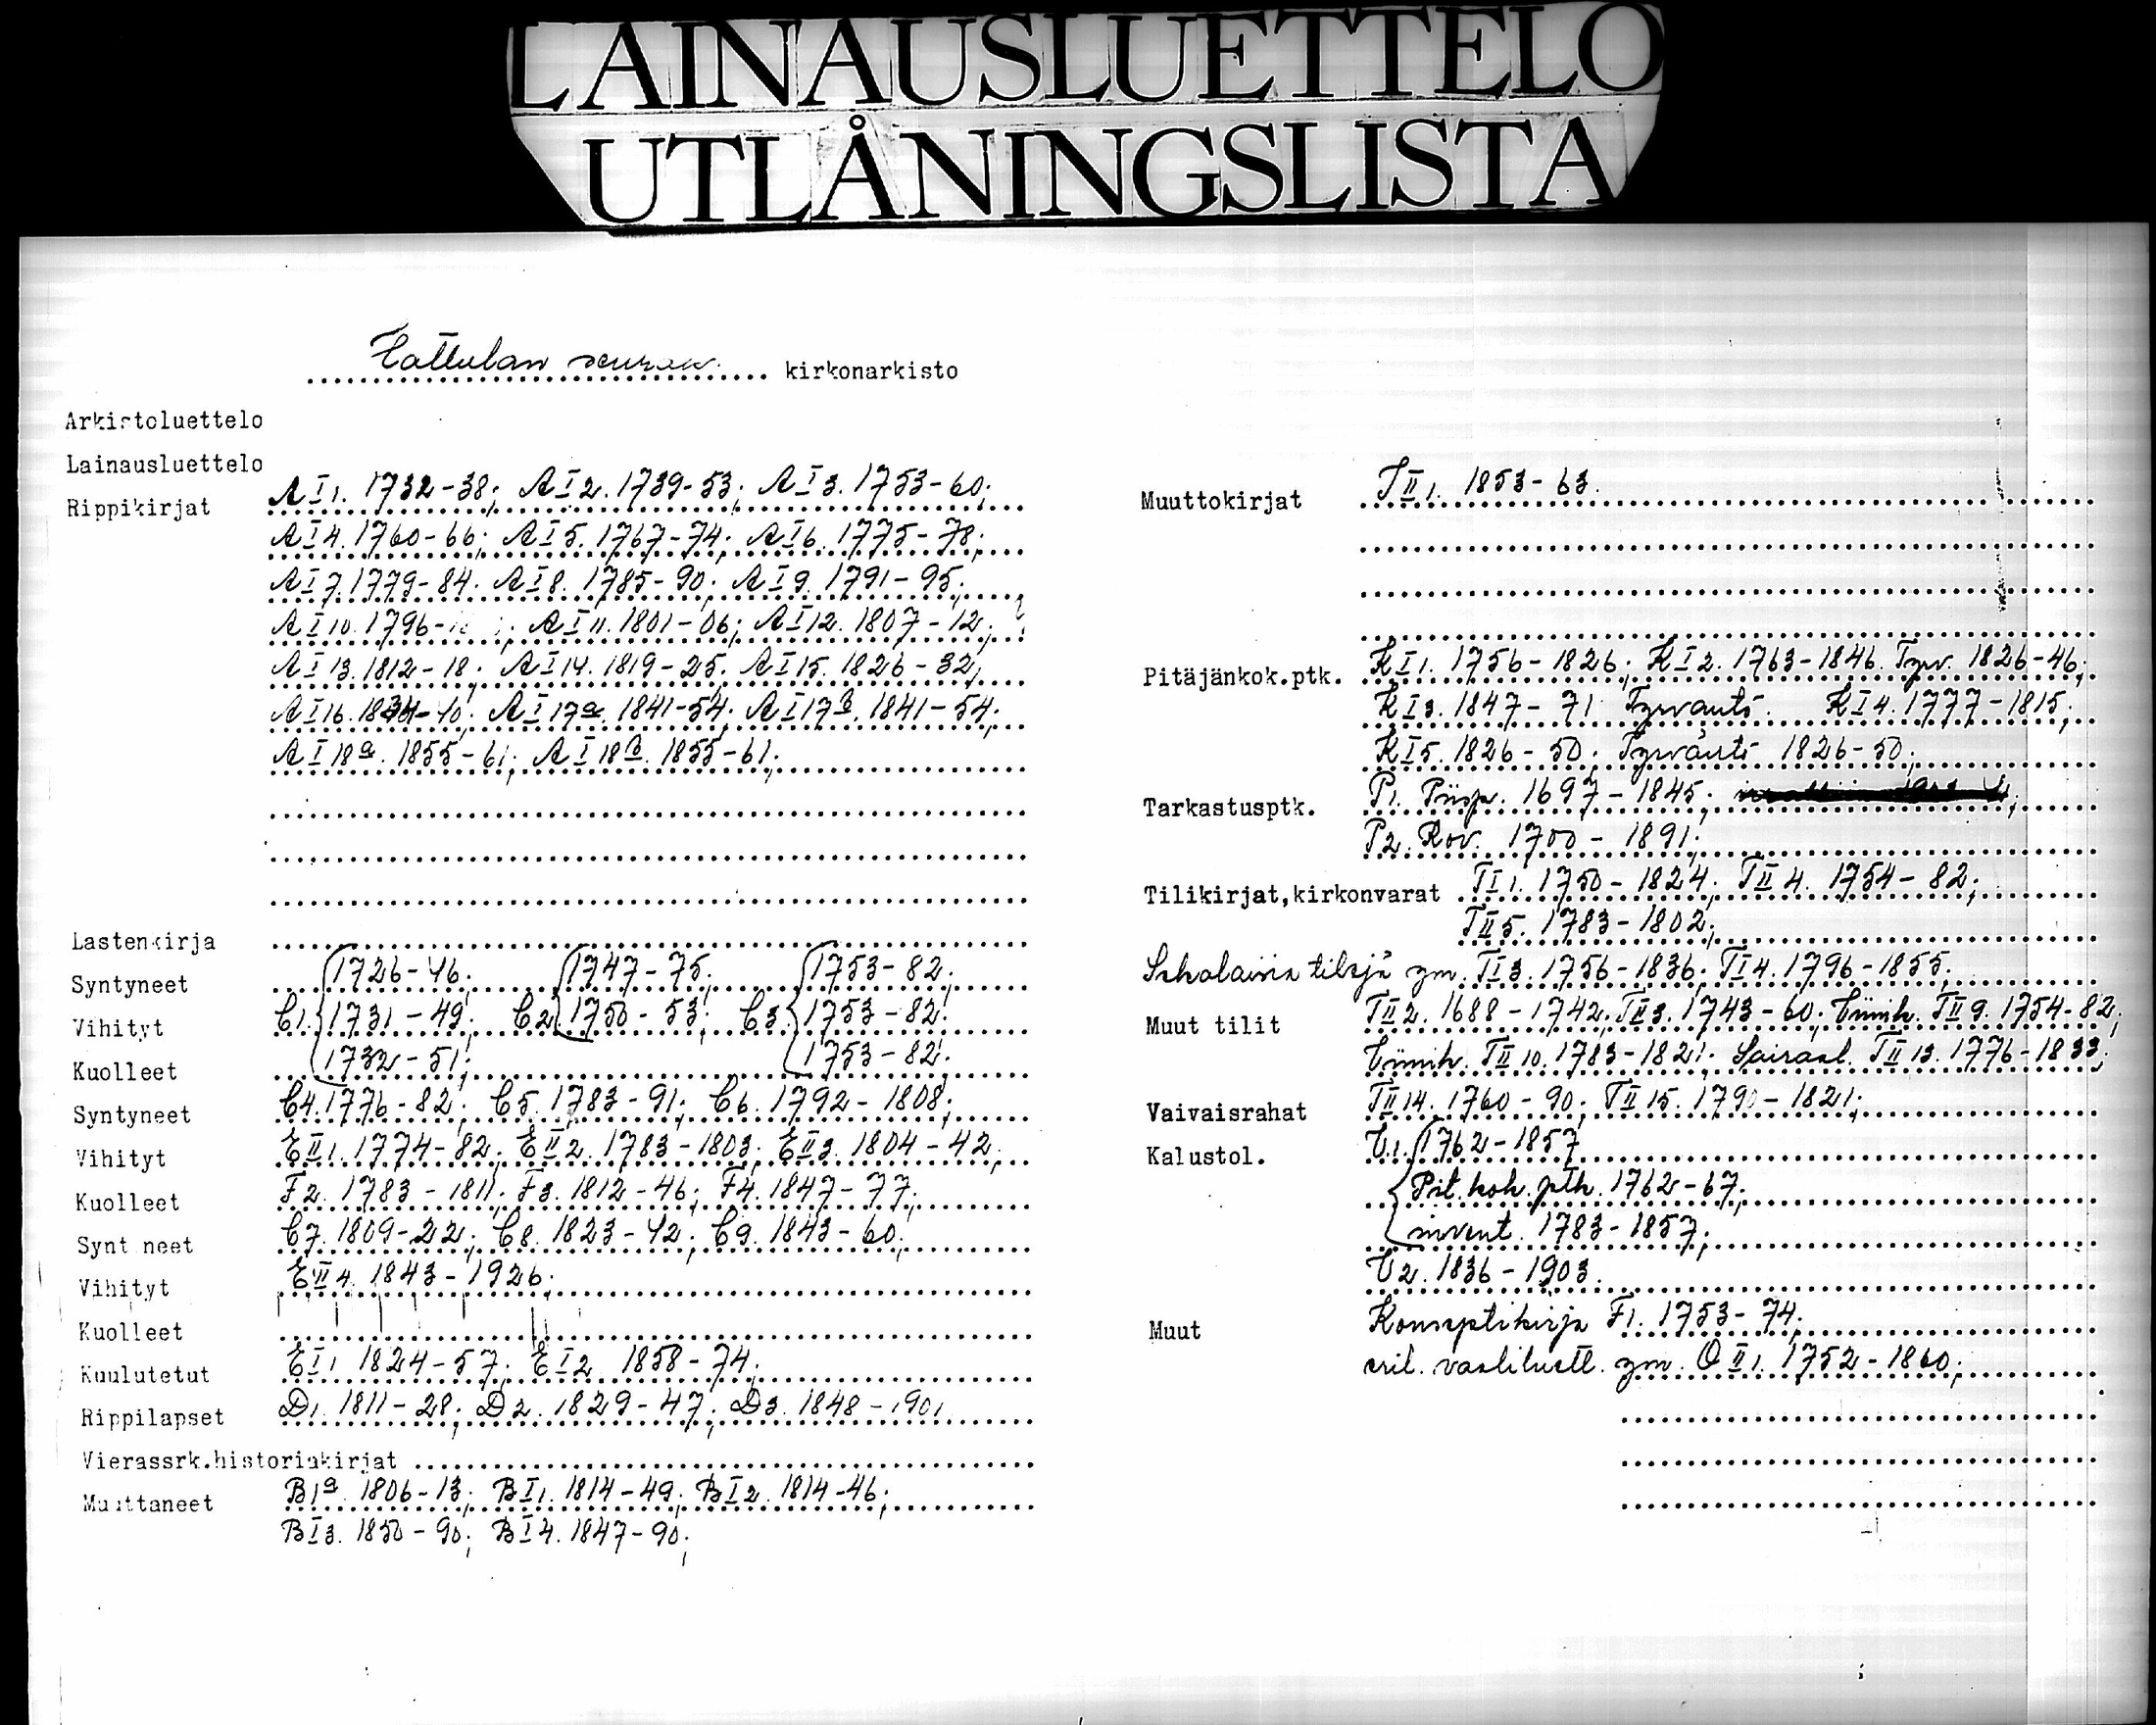 LAINAUSLUETTELO
UTLÅNINGSLISTA
Hattulan seurak. kirkonarkisto
Arkistoluettelo
Lainausluettelo
Rippikirjat A I 1. 1732-38; A I 2. 1739-53; A I 3. 1753-60;
A I 4. 1760-66; A I 5. 1767-74; A I 6. 1775-78;
A I 7. 1779-84; A I 8. 1785-90; A I 9. 1791-95;
A I 10. 1796- ; A I 11. 1801-06; A I 12. 1807-12;
A I 13. 1812-18; A I 14. 1819-25; A I 15. 1826-32;
A I 16. 1834-40; A I 17a. 1841-54; A I 17B. 1841-54;
A I 18a. 1855-61; A I 18B. 1855-61;
Lastenkirja
Syntyneet 1726-46; 1747-75; 1753-82;
Vihityt C1. 1731-49; C2 1750-53; C3 1753-82;
Kuolleet 1732-51; 1753-82;
Syntyneet C4. 1776-82; C5. 1783-91; C6. 1792-1808;
Vihityt E II 1. 1774-82; E II 2. 1783-1803; E II 3. 1804-42;
Kuolleet F2. 1783-1811; F3. 1812-46; F4. 1847-77;
Synt neet C7. 1809-22; C8. 1823-42; C9. 1843-60;
Vihityt E II 4. 1843-1926.
Kuolleet
Kuulutetut E I 1 1824-57; E I 2 1858-74;
Rippilapset D1. 1811-28; D2. 1829-47; D3. 1848-1901
Vierassrk.historiakirjat
Muuttaneet B1a 1806-13; B I 1. 1814-49; B I 2. 1814-46;
B I 3. 1850-90; B I 4. 1847-90;
Muuttokirjat J II 1. 1853-63.
Pitäjänkok.ptk. K I 1. 1756-1826; K I 2. 1763-1846. Tyrv. 1826-46;
K I 3. 1847-71 Tyrväntö. K I 4. 1777-1815;
K I 5. 1826-50; Tyrväntö 1826-50;
Tarkastusptk. P1. Piisp. 1697-1845;
P2. Rov. 1700-1891;
Tilikirjat,kirkonvarat T I 1. 1750-1824; T II 4. 1754-82;
T II 5. 1783-1802;
Sekalaisia tilejä ym. T I 3. 1756-1836; T I 4. 1796-1855;
Muut tilit T II 2. 1688-1742; T II 3. 1743-60; T II 9. 1754-82;
T II 10. 1783-1821; Sairaal. T II 13. 1776-1833;
Vaivaisrahat T II 14. 1760-90; T II 15. 1790-1821;
Kalustol. U1. 1762-1857
Pit. kok. ptk. 1762-67;
invent. 1783-1857;
U2. 1836-1903.
Muut Konseptikirja F1. 1753-74;
eril. vaaliluett. ym. O II 1. 1752-1860;